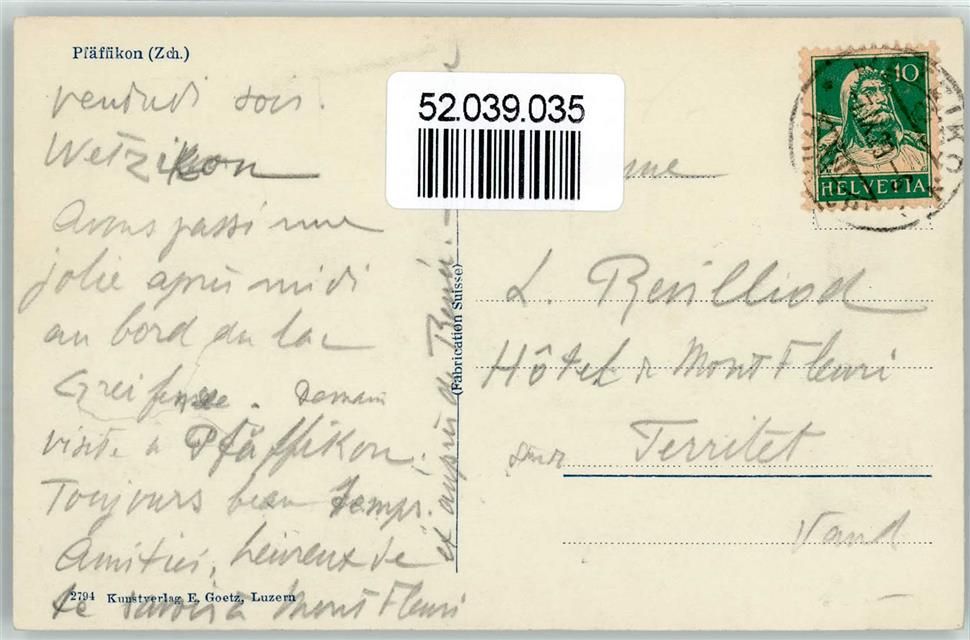 Pfäffikon (Zch.)
vendredi soir.
Wetzikon
Avons passé une
jolie après midi
au bord du lac
Greifensee. Demain
visite à Pfäffikon.
Toujours beau temps.
Amitiés, heureux de
te savoir à Mont Fleuri
et auprès de
2794 Kunstverlag E. Goetz, Luzern
(Fabrication Suisse)
52.039.035
10
HELVETIA
me
L. Revilliod
Hôtel Mont Fleuri
sur Territet
Vaud